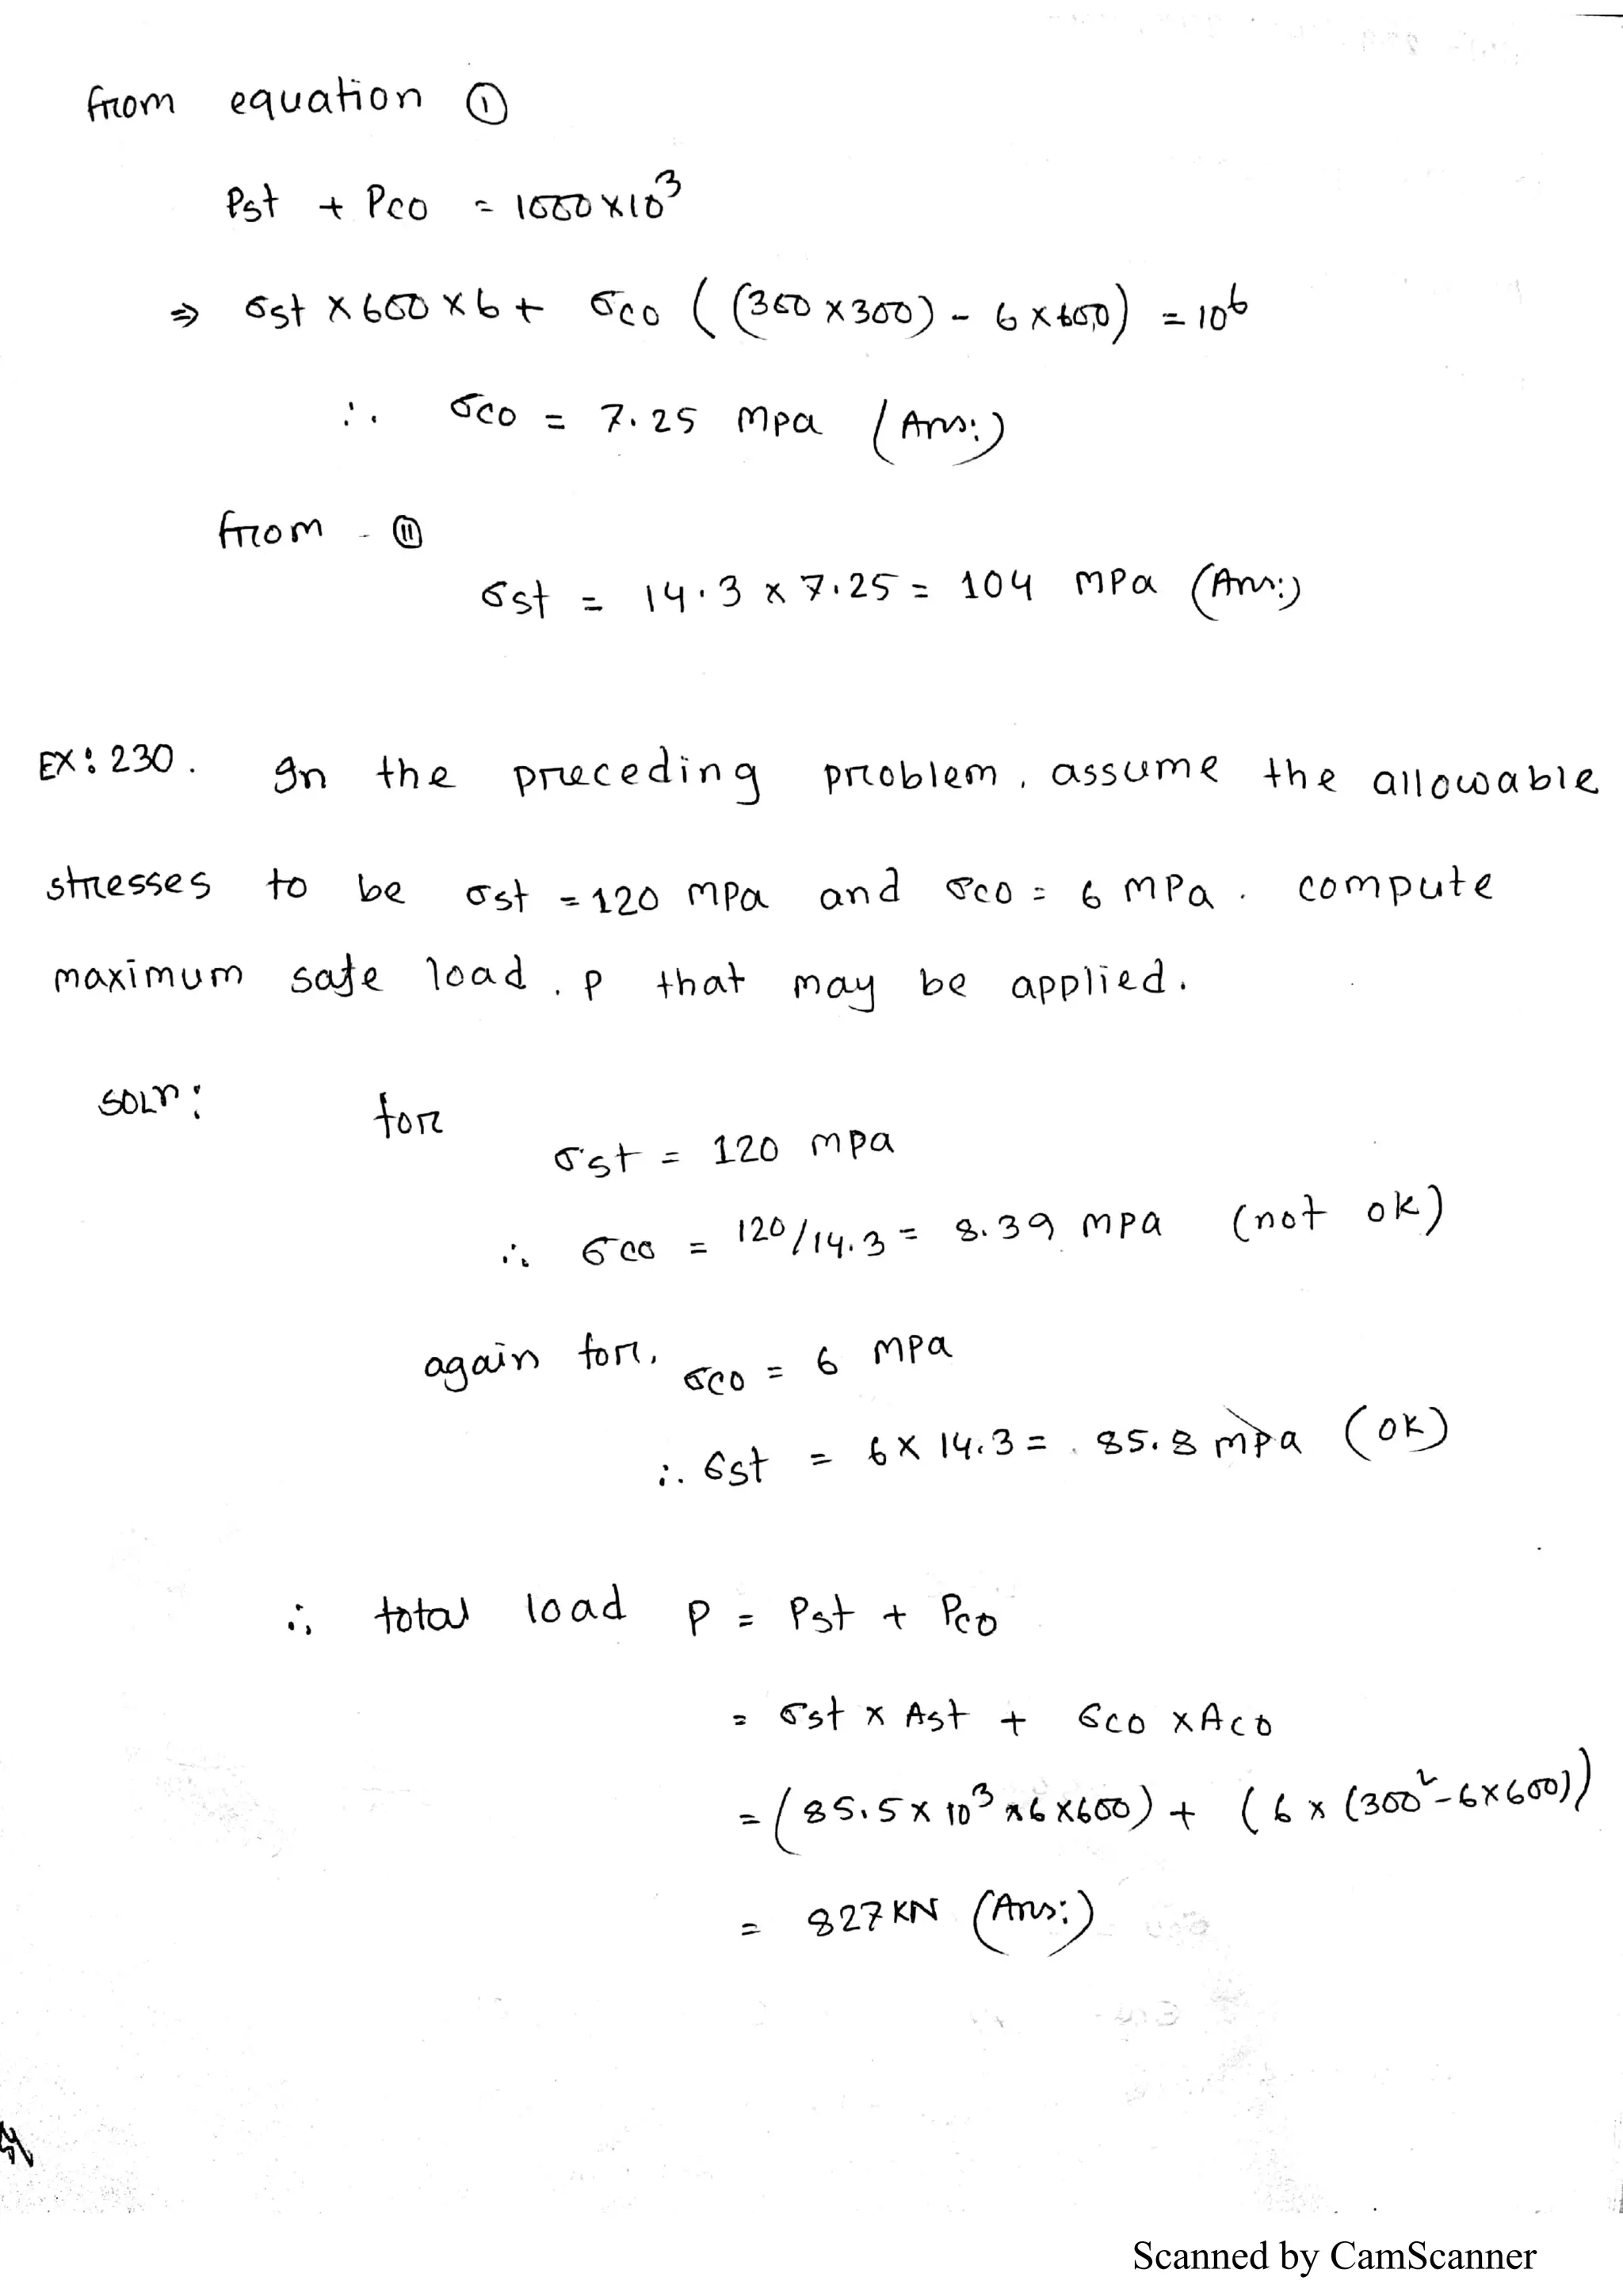 from equation ①
Pst + Pco = 1000×10³
⇒ σst × 600 × 6 + σco ((300 × 300) - 6 × 600) = 10⁶
∴ σco = 7.25 Mpa (Ans:)
from - ⑪
σst = 14.3 × 7.25 = 104 MPa (Ans:)
EX: 230. In the preceding problem, assume the allowable
stresses to be σst = 120 MPa and σco = 6 MPa. compute
maximum safe load. P that may be applied.
SOLn: for
σst = 120 mpa
∴ σco = 120/14.3 = 8.39 MPa (not ok)
again for, σco = 6 MPa
∴ σst = 6 × 14.3 = 85.8 mpa (OK)
∴ total load P = Pst + Pco
= σst × Ast + σco × Aco
= (85.5 × 10³ × 6 × 600) + (6 × (300² - 6 × 600))
= 827 KN (Ans:)
Scanned by CamScanner